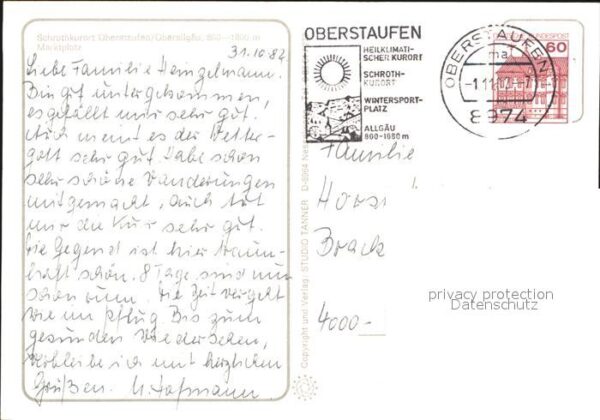 Schrothkurort Oberstaufen/Oberallgäu, 800-1800 m
Marktplatz
31.10.82
Liebe Familie Heinzelmann.
Bin gut untergekommen,
es gefällt mir sehr gut.
Auch meint es der Wetter-
gott sehr gut. Habe schon
sehr schöne Wanderungen
mitgemacht, auch tut
mir die Kur sehr gut.
Die Gegend ist hier traum-
haft schön. 8 Tage sind nun
schon rum. Die Zeit vergeht
wie im pflug Bis zum
gesunden Wiedersehen,
verbleibe ich mit herzlichen
Grüßen. U. Hofmann
Copyright und Verlag: STUDIO TANNER D-8964 Nes
OBERSTAUFEN
HEILKLIMATI-
SCHER KURORT
SCHROTH-
KURORT
WINTERSPORT-
PLATZ
ALLGÄU
800-1680 m
OBERSTAUFEN
ma
-1.11.82-7
8974
DEUTSCHE BUNDESPOST
60
Familie
Horst
Brack
4000-
privacy protection
Datenschutz